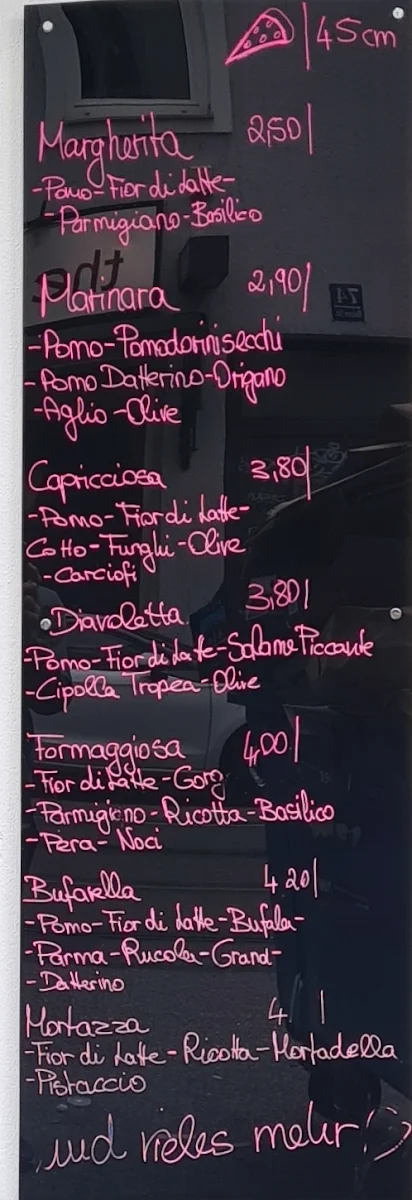 45cm
Margherita 2,50
-Pomo-Fior di Latte-
-Parmigiano-Basilico
Marinara 2,90
-Pomo-Pomodorini secchi
-Pomo Datterino-Origano
-Aglio-Olive
Capricciosa 3,80
-Pomo-Fior di Latte-
Cotto-Funghi-Olive
-Carciofi
Diavoletta 3,80
-Pomo-Fior di Latte-Salame Piccante
-Cipolla Tropea-Olive
Formaggiosa 4,00
-Fior di Latte-Gorg
-Parmigiano-Ricotta-Basilico
-Pera-Noci
Bufarella 4 20
-Pomo-Fior di Latte-Bufala-
-Parma-Rucola-Grand-
-Datterino
Mortazza 4
-Fior di Latte-Ricotta-Mortadella
-Pistaccio
und vieles mehr